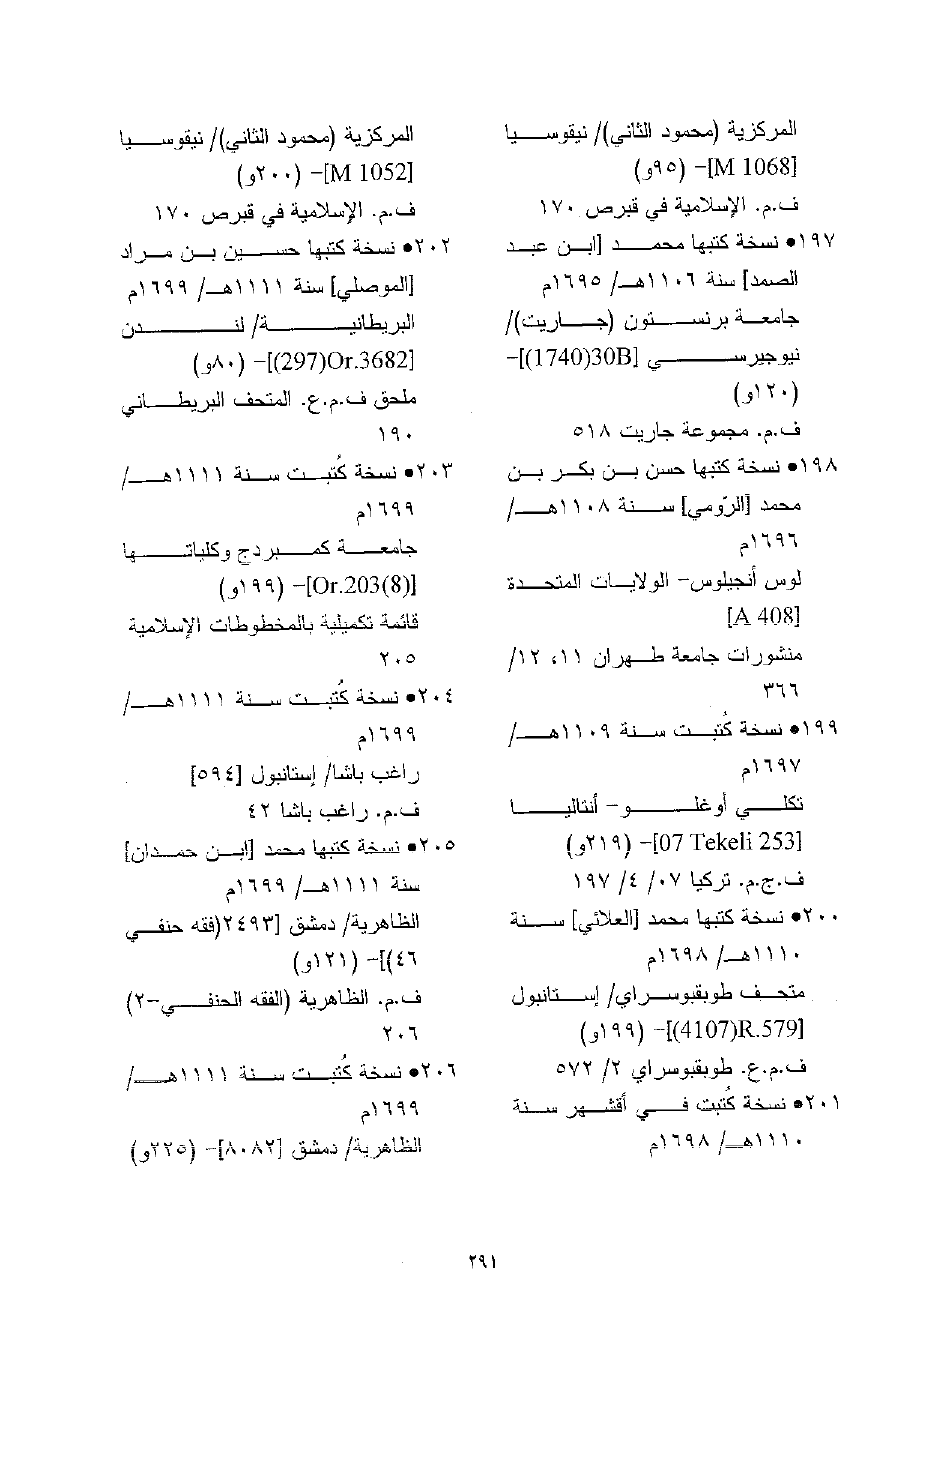 المركزية (محمود الثاني)/ نيقوسيا
[M 1068]- (٩٥و)
ف.م. الإسلامية في قبرص ١٧٠
١٩٧• نسخة كتبها محمد [ابن عبد
الصمد] سنة ١١٠٦هـ/ ١٦٩٥م
جامعة برنستون (جاريت)/
نيوجيرسي [30B(1740)]-
(١٢٠و)
ف.م. مجموعة جاريت ٥١٨
١٩٨• نسخة كتبها حسن بن بكر بن
محمد [الرّومي] سنة ١١٠٨هـ/
١٦٩٦م
لوس أنجيلوس- الولايات المتحدة
[A 408]
منشورات جامعة طهران ١١، ١٢/
٣٦٦
١٩٩• نسخة كُتبت سنة ١١٠٩هـ/
١٦٩٧م
تكلي أوغلو- أنتاليا
[07 Tekeli 253]- (٢١٩و)
ف.ج.م. تركيا ٠٧/ ٤/ ١٩٧
٢٠٠• نسخة كتبها محمد [العلائي] سنة
١١١٠هـ/ ١٦٩٨م
متحف طوبقبوسراي/ إستانبول
[R.579(4107)]- (١٩٩و)
ف.م.ع. طوبقبوسراي ٢/ ٥٧٢
٢٠١• نسخة كُتبت في أقشهر سنة
١١١٠هـ/ ١٦٩٨م
المركزية (محمود الثاني)/ نيقوسيا
[M 1052]- (٢٠٠و)
ف.م. الإسلامية في قبرص ١٧٠
٢٠٢• نسخة كتبها حسين بن مراد
[الموصلي] سنة ١١١١هـ/ ١٦٩٩م
البريطانية/ لندن
[Or.3682(297)]- (٨٠و)
ملحق ف.م.ع. المتحف البريطاني
١٩٠
٢٠٣• نسخة كُتبت سنة ١١١١هـ/
١٦٩٩م
جامعة كمبردج وكلياتها
[Or.203(8)]- (١٩٩و)
قائمة تكميلية بالمخطوطات الإسلامية
٢٠٥
٢٠٤• نسخة كُتبت سنة ١١١١هـ/
١٦٩٩م
راغب باشا/ إستانبول [٥٩٤]
ف.م. راغب باشا ٤٢
٢٠٥• نسخة كتبها محمد [ابن حمدان]
سنة ١١١١هـ/ ١٦٩٩م
الظاهرية/ دمشق [٢٤٩٣(فقه حنفي
٤٦)]- (١٢١و)
ف.م. الظاهرية (الفقه الحنفي-٢)
٢٠٦
٢٠٦• نسخة كُتبت سنة ١١١١هـ/
١٦٩٩م
الظاهرية/ دمشق [٨٠٨٢]- (٢٢٥و)
٢٩١